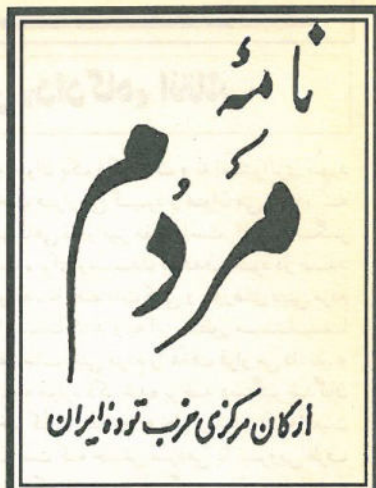 نامۀ
مَردُم
ارگان مرکزی حزب تودۀ ایران